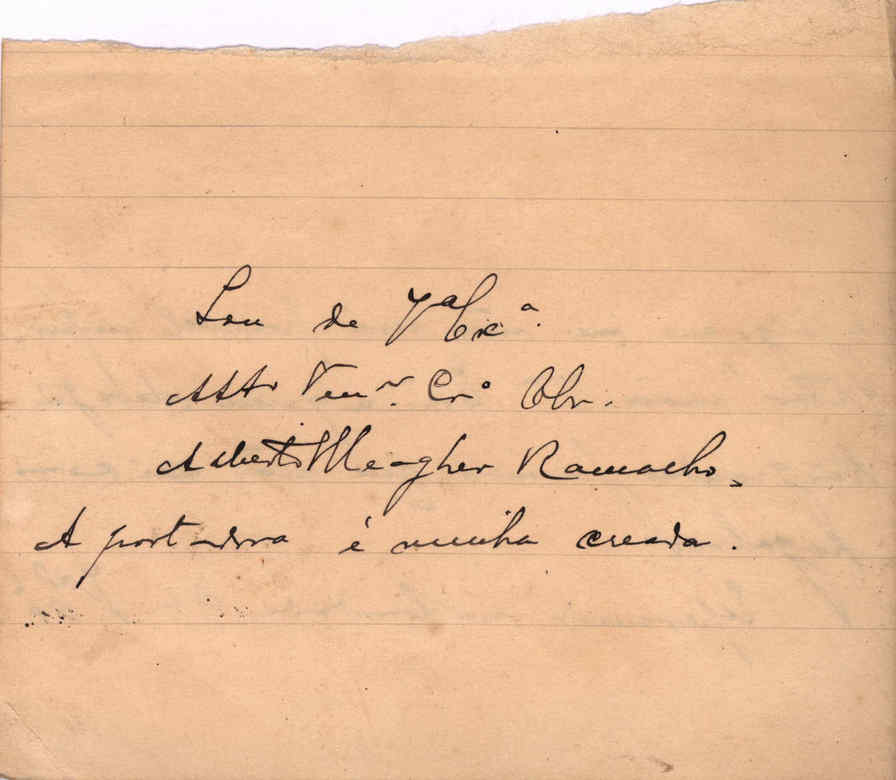 Sou de Vª Excª.
Attº Venʳ. Crº Obr.
Alberto Meagher Ramacho,
A portadora é minha creada.